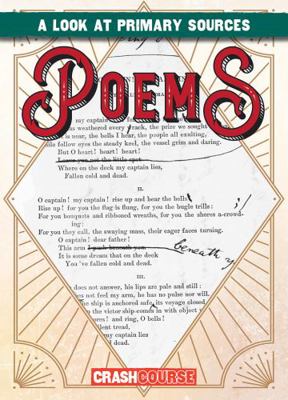 A LOOK AT PRIMARY SOURCES
POEMS
my captain
is weathered every rack, the prize we sought
is near, the bells I hear, the people all exulting,
hile follow eyes the steady keel, the vessel grim and daring.
But O heart! heart! heart!
Leave you not the little spot
Where on the deck my captain lies,
Fallen cold and dead.
II.
O captain! my captain! rise up and hear the bells
Rise up! for you the flag is flung, for you the bugle trills:
For you bouquets and ribboned wreaths, for you the shores a-crowd-
ing:
For you they call, the swaying mass, their eager faces turning.
O captain! dear father!
This arm I push beneath you. beneath y
It is some dream that on the deck
You've fallen cold and dead.
III.
does not answer, his lips are pale and still:
es not feel my arm, he has no pulse nor will.
he ship is anchored safe, its voyage closed
m the victory ship comes in with object
ores! and ring, O bells!
lent tread,
my captain lies
d and dead.
CRASHCOURSE